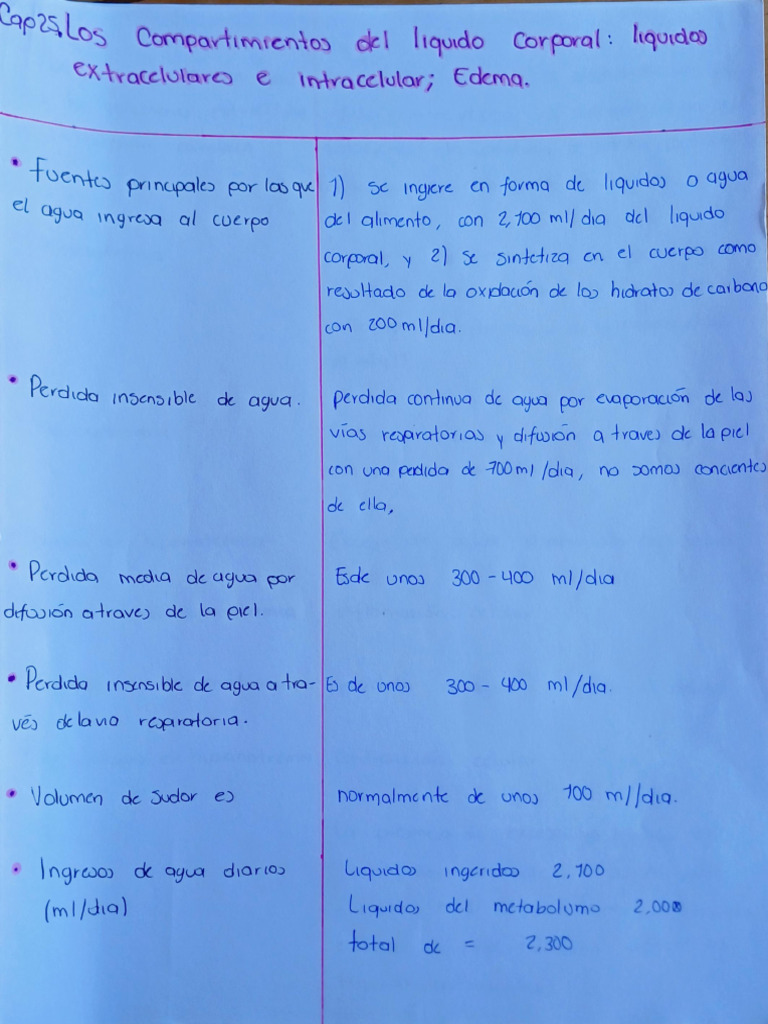 Cap25. Los Compartimientos del liquido Corporal: liquidos
extracelulares e intracelular; Edema.
• Fuentes principales por las que
el agua ingresa al cuerpo
1) Se ingiere en forma de liquidos o agua
del alimento, con 2,100 ml/dia del liquido
corporal, y 2) Se sintetiza en el cuerpo como
resultado de la oxidación de los hidratos de carbono
con 200 ml/dia.
• Perdida insensible de agua.
perdida continua de agua por evaporación de las
vías respiratorias y difusión a traves de la piel
con una perdida de 700 ml/dia, no somos concientes
de ella,
• Perdida media de agua por
difusión a traves de la piel.
Esde unos 300-400 ml/dia
• Perdida insensible de agua a tra-
vés de la via respiratoria.
Es de unos 300-400 ml/dia.
• Volumen de sudor es
normalmente de unos 100 ml/dia.
• Ingresos de agua diarios
(ml/dia)
Liquidos ingeridos 2,100
Liquidos del metabolismo 2,000
total de = 2,300